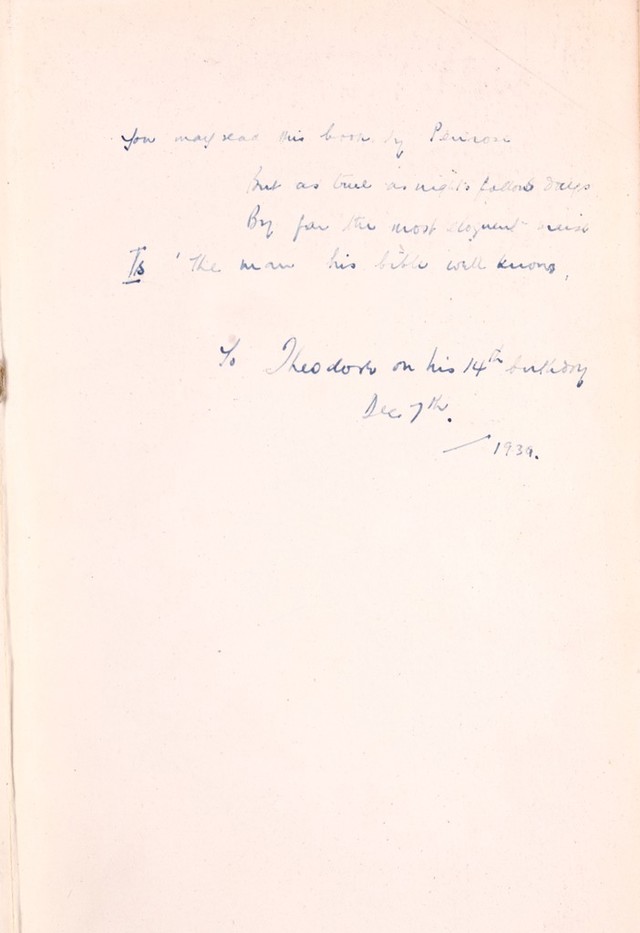 You may read this book by Penrose
But as true as night follows days
By far the most eloquent
Is 'the man his bible well knows,
To Theodore on his 14th birthday
Dec 7th.
— 1939.